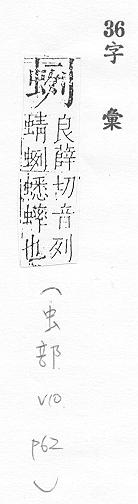 36
字彙
蛚
良薛切音列
蜻蛚蟋蟀也
(虫部 V10 P62)